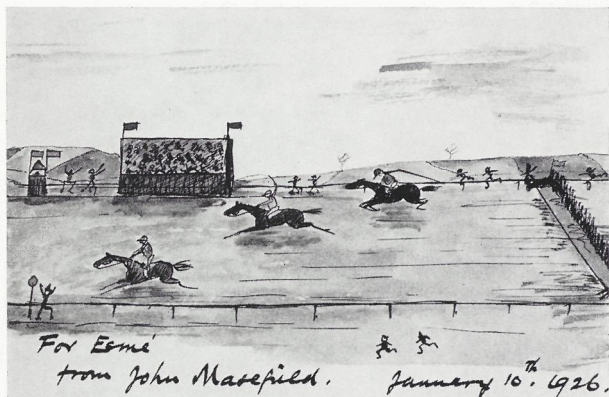 For Esmé
from John Masefield. January 10.th 1926.